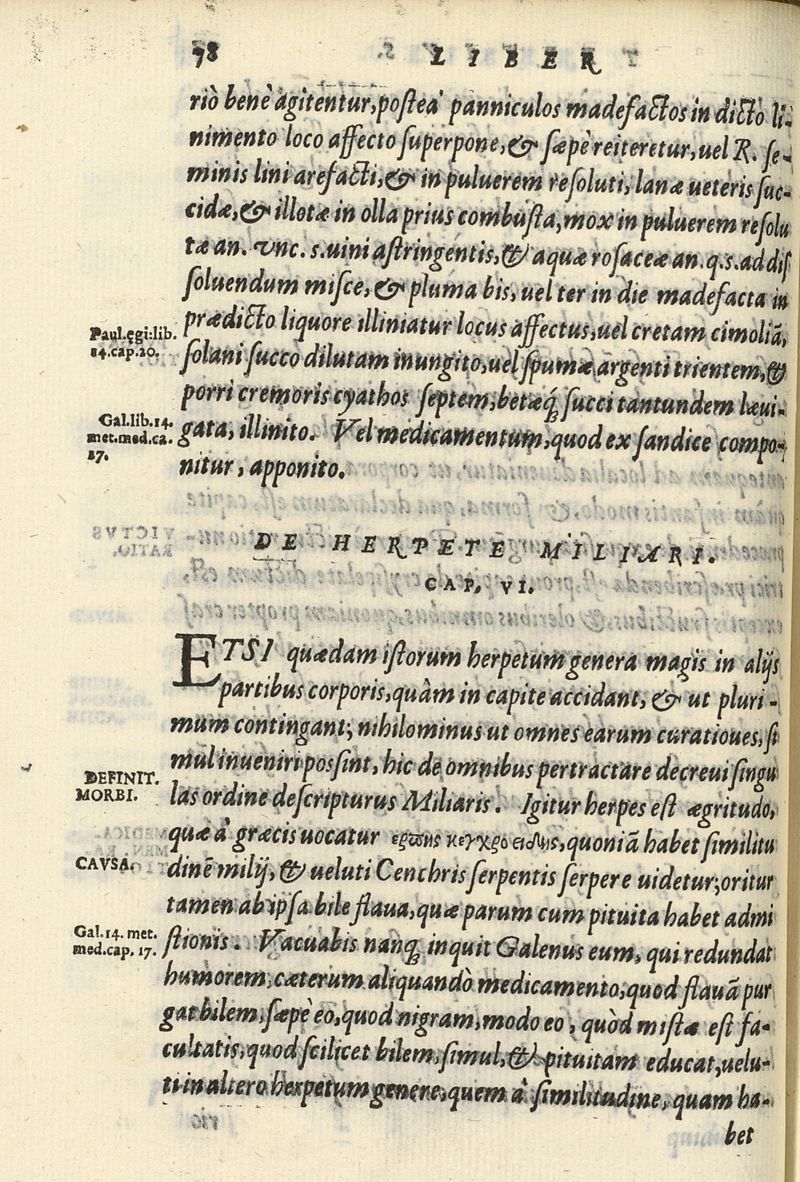 78 LIBER
riò benè agitentur, posteà panniculos madefactos in dicto li-
nimento loco affecto superpone, & sæpè reiteretur, uel R. se-
minis lini arefacti, & in puluerem resoluti, lanæ ueteris suc-
cidæ, & illotæ in olla prius combusta, mox in puluerem resolu
tæ an. vnc. s. uini astringentis, & aquæ rosaceæ an. q.s. ad dis
soluendum misce, & pluma bis, uel ter in die madefacta in
Paul.ęgi:lib.
14.cap.20.
prædicto liquore illiniatur locus affectus, uel cretam cimoliã,
solani succo dilutam inungito, uel spumæ argenti trientem, &
porri cremoris cyathos septem, betæq́; succi tantundem læui-
Gal.lib.14.
met.med.ca.
17.
gata, illinito. Vel medicamentum, quod ex sandice compo-
nitur, apponito.
DE HERPETE MILIARI.
CAP. VI.
ETSI quædam istorum herpetum genera magis in alijs
partibus corporis, quàm in capite accidant, & ut pluri-
mum contingant; nihilominus ut omnes earum curatioues, si
mul inueniri possint, hic de omnibus pertractare decreui singu
DEFINIT.
MORBI.
las ordine descripturus Miliaris. Igitur herpes est ægritudo,
quæ à græcis uocatur κεγχροειδης, quoniã habet similitu
CAVSA.
dinẽ milij, & ueluti Cenchris serpentis serpere uidetur; oritur
tamen ab ipsa bile flaua, quæ parum cum pituita habet admi
Gal.14. met.
med.cap. 17.
stionis. Vacuabis nanq; inquit Galenus eum, qui redundat
humorem, cæterum aliquandò medicamento, quod flauã pur
gat bilem, sæpè eo, quod nigram, modo eo, quòd mistæ est fa-
cultatis, quod scilicet bilem, simul, & pituitam educat, uelu-
ti in altero herpetum genere, quem à similitudine, quam ha-
bet